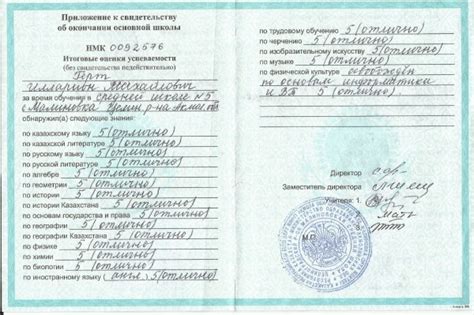 Приложение к свидетельству
об окончании основной школы
НМК 0092676
Итоговые оценки успеваемости
(без свидетельства недействительно)
Герт
Илларион Михайлович
за время обучения в средней школе №5
с. Малиновка Целин. р-на Акмол. обл.
обнаружил(а) следующие знания:
по казахскому языку 5 (отлично)
по казахской литературе 5 (отлично)
по русскому языку 5 (отлично)
по русской литературе 5 (отлично)
по алгебре 5 (отлично)
по геометрии 5 (отлично)
по истории 5 (отлично)
по истории Казахстана 5 (отлично)
по основам государства и права 5 (отлично)
по географии 5 (отлично)
по географии Казахстана 5 (отлично)
по физике 5 (отлично)
по химии 5 (отлично)
по биологии 5 (отлично)
по иностранному языку (англ) 5 (отлично)
по трудовому обучению 5 (отлично)
по черчению 5 (отлично)
по изобразительному искусству 5 (отлично)
по музыке 5 (отлично)
по физической культуре освобождён
по основам информатики
и ВТ 5 (отлично)
Директор
Заместитель директора
Учителя: 1.
М.П.